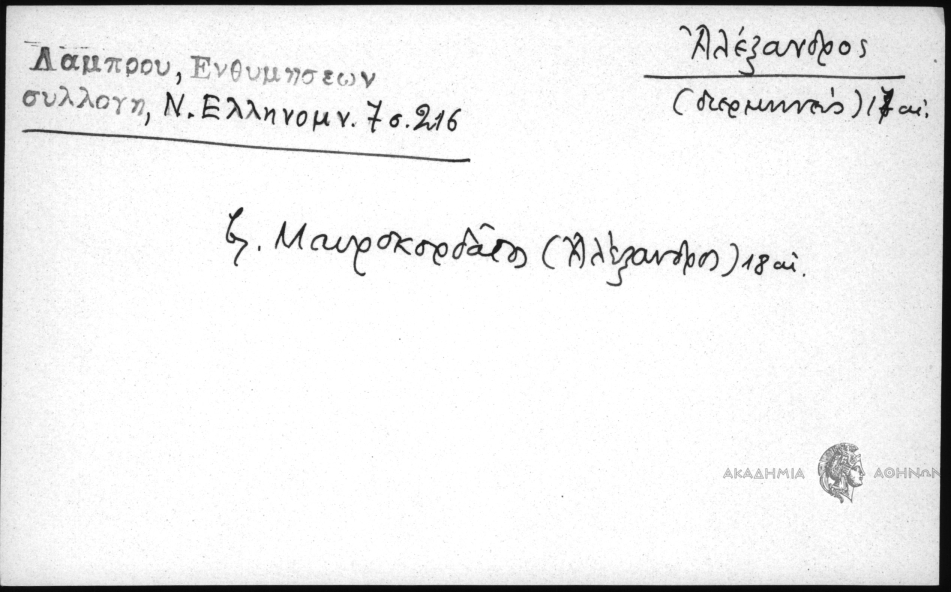 Λαμπρου, Ενθυμησεων
συλλογη, Ν. Ελληνομν. 7 σ. 216
Ἀλέξανδρος
(διερμηνεύς) 17 αἰ.
βλ. Μαυροκορδᾶτος (Ἀλέξανδρος) 18 αἰ.
ΑΚΑΔΗΜΙΑ ΑΘΗΝΩΝ